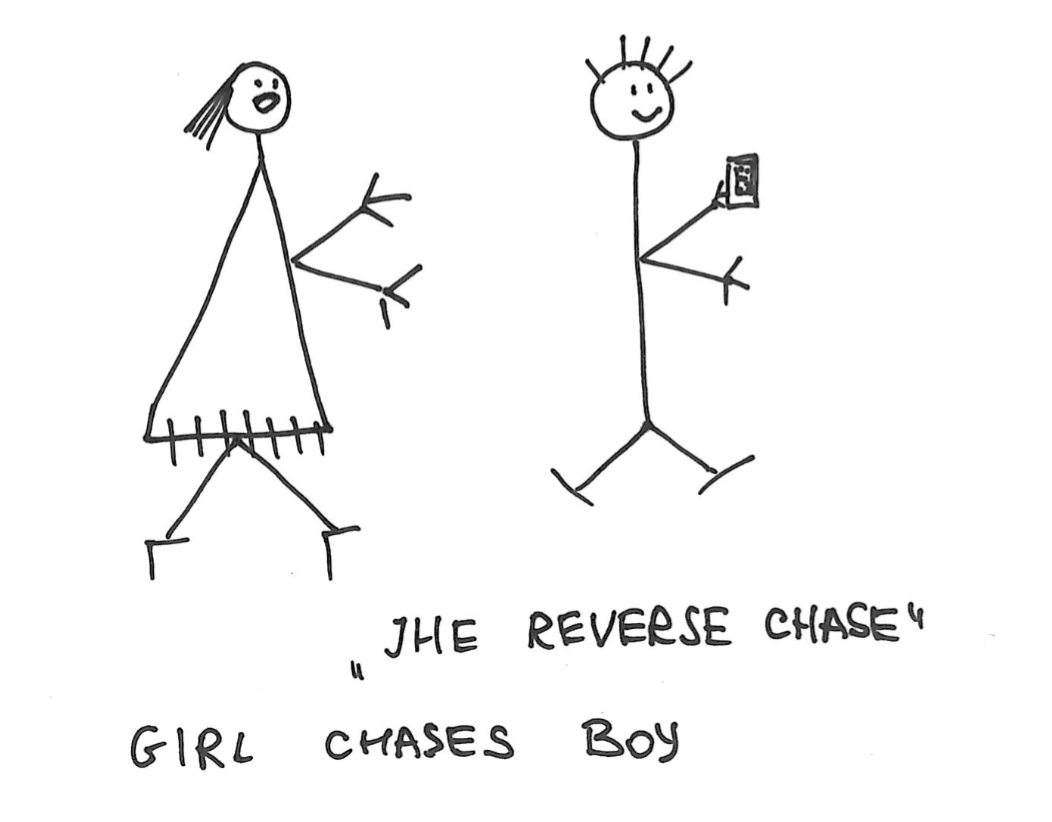 „THE REVERSE CHASE"
GIRL CHASES BOY